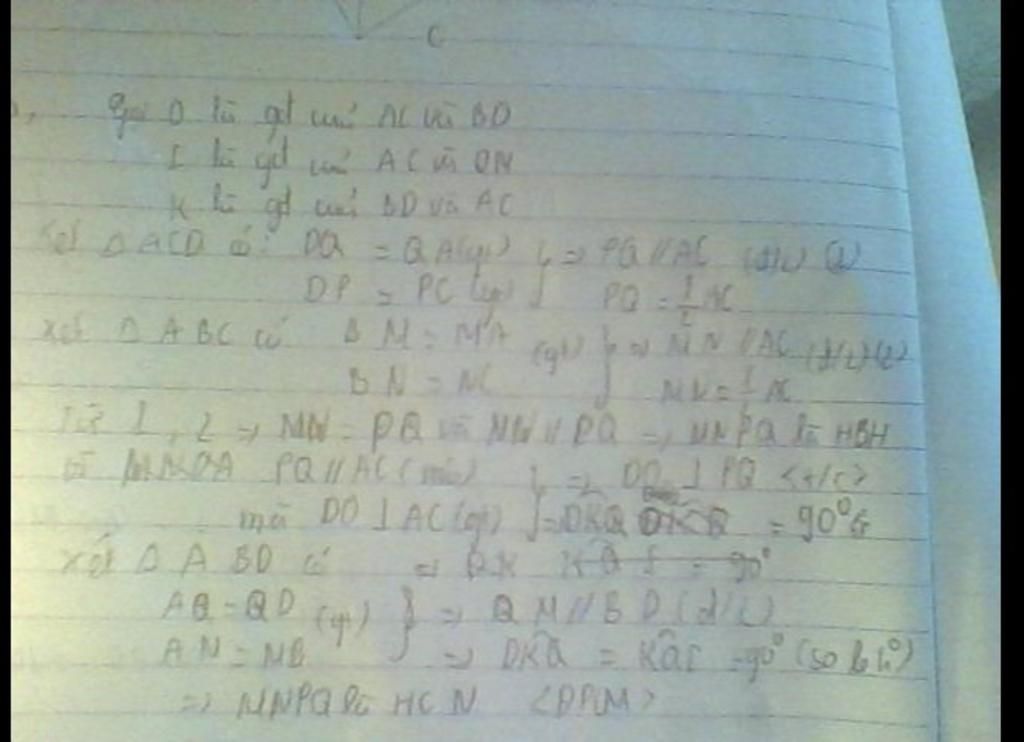 C
Gọi O là gđ của AC và BD
I là gđ của AC và QM
K là gđ của BD và AC
Xét Δ ACD có: DQ = QA (gt) } => PQ // AC (đ/l) (1)
DP = PC (gt) PQ = 1/2 AC
Xét Δ ABC có BM = MA (gt) } => MN // AC (đ/l) (2)
BN = NC MN = 1/2 AC
Từ 1, 2 => MN = PQ và MN // PQ => MNPQ là HBH
PQ // AC (mc) } => DO ⊥ PQ <t/c>
mà DO ⊥ AC (gt) } = DKQ = 90°
Xét Δ ABD có
AQ = QD (gt) } => QM // BD (đ/l)
AM = MB => DKQ = KQI = 90° (so le)
=> MNPQ là HCN <ĐPCM>